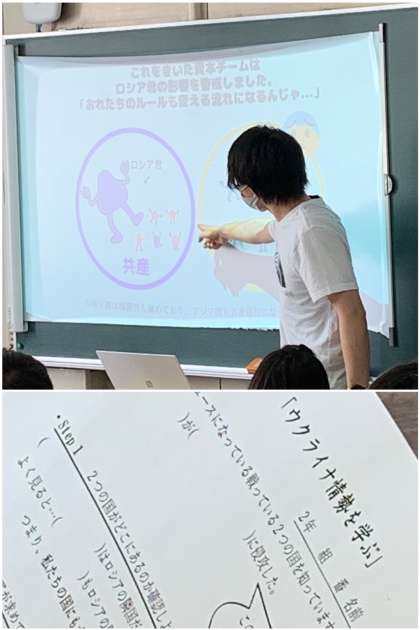 これをきいた資本チームは
ロシア君の影響を警戒しました。
「おれたちのルールも変える流れになるんじゃ…」
ロシア君
共産
「ウクライナ情勢を学ぶ」
2年 組 番 名前
ュースになっている戦っている2つの国を知っています
)が( )に侵攻した。
・Step 1 2つの国がどこにあるのか確認しよ
( )はロシアの隣国だ
よく見ると…( )もロシアの
つまり、私たちの国にも